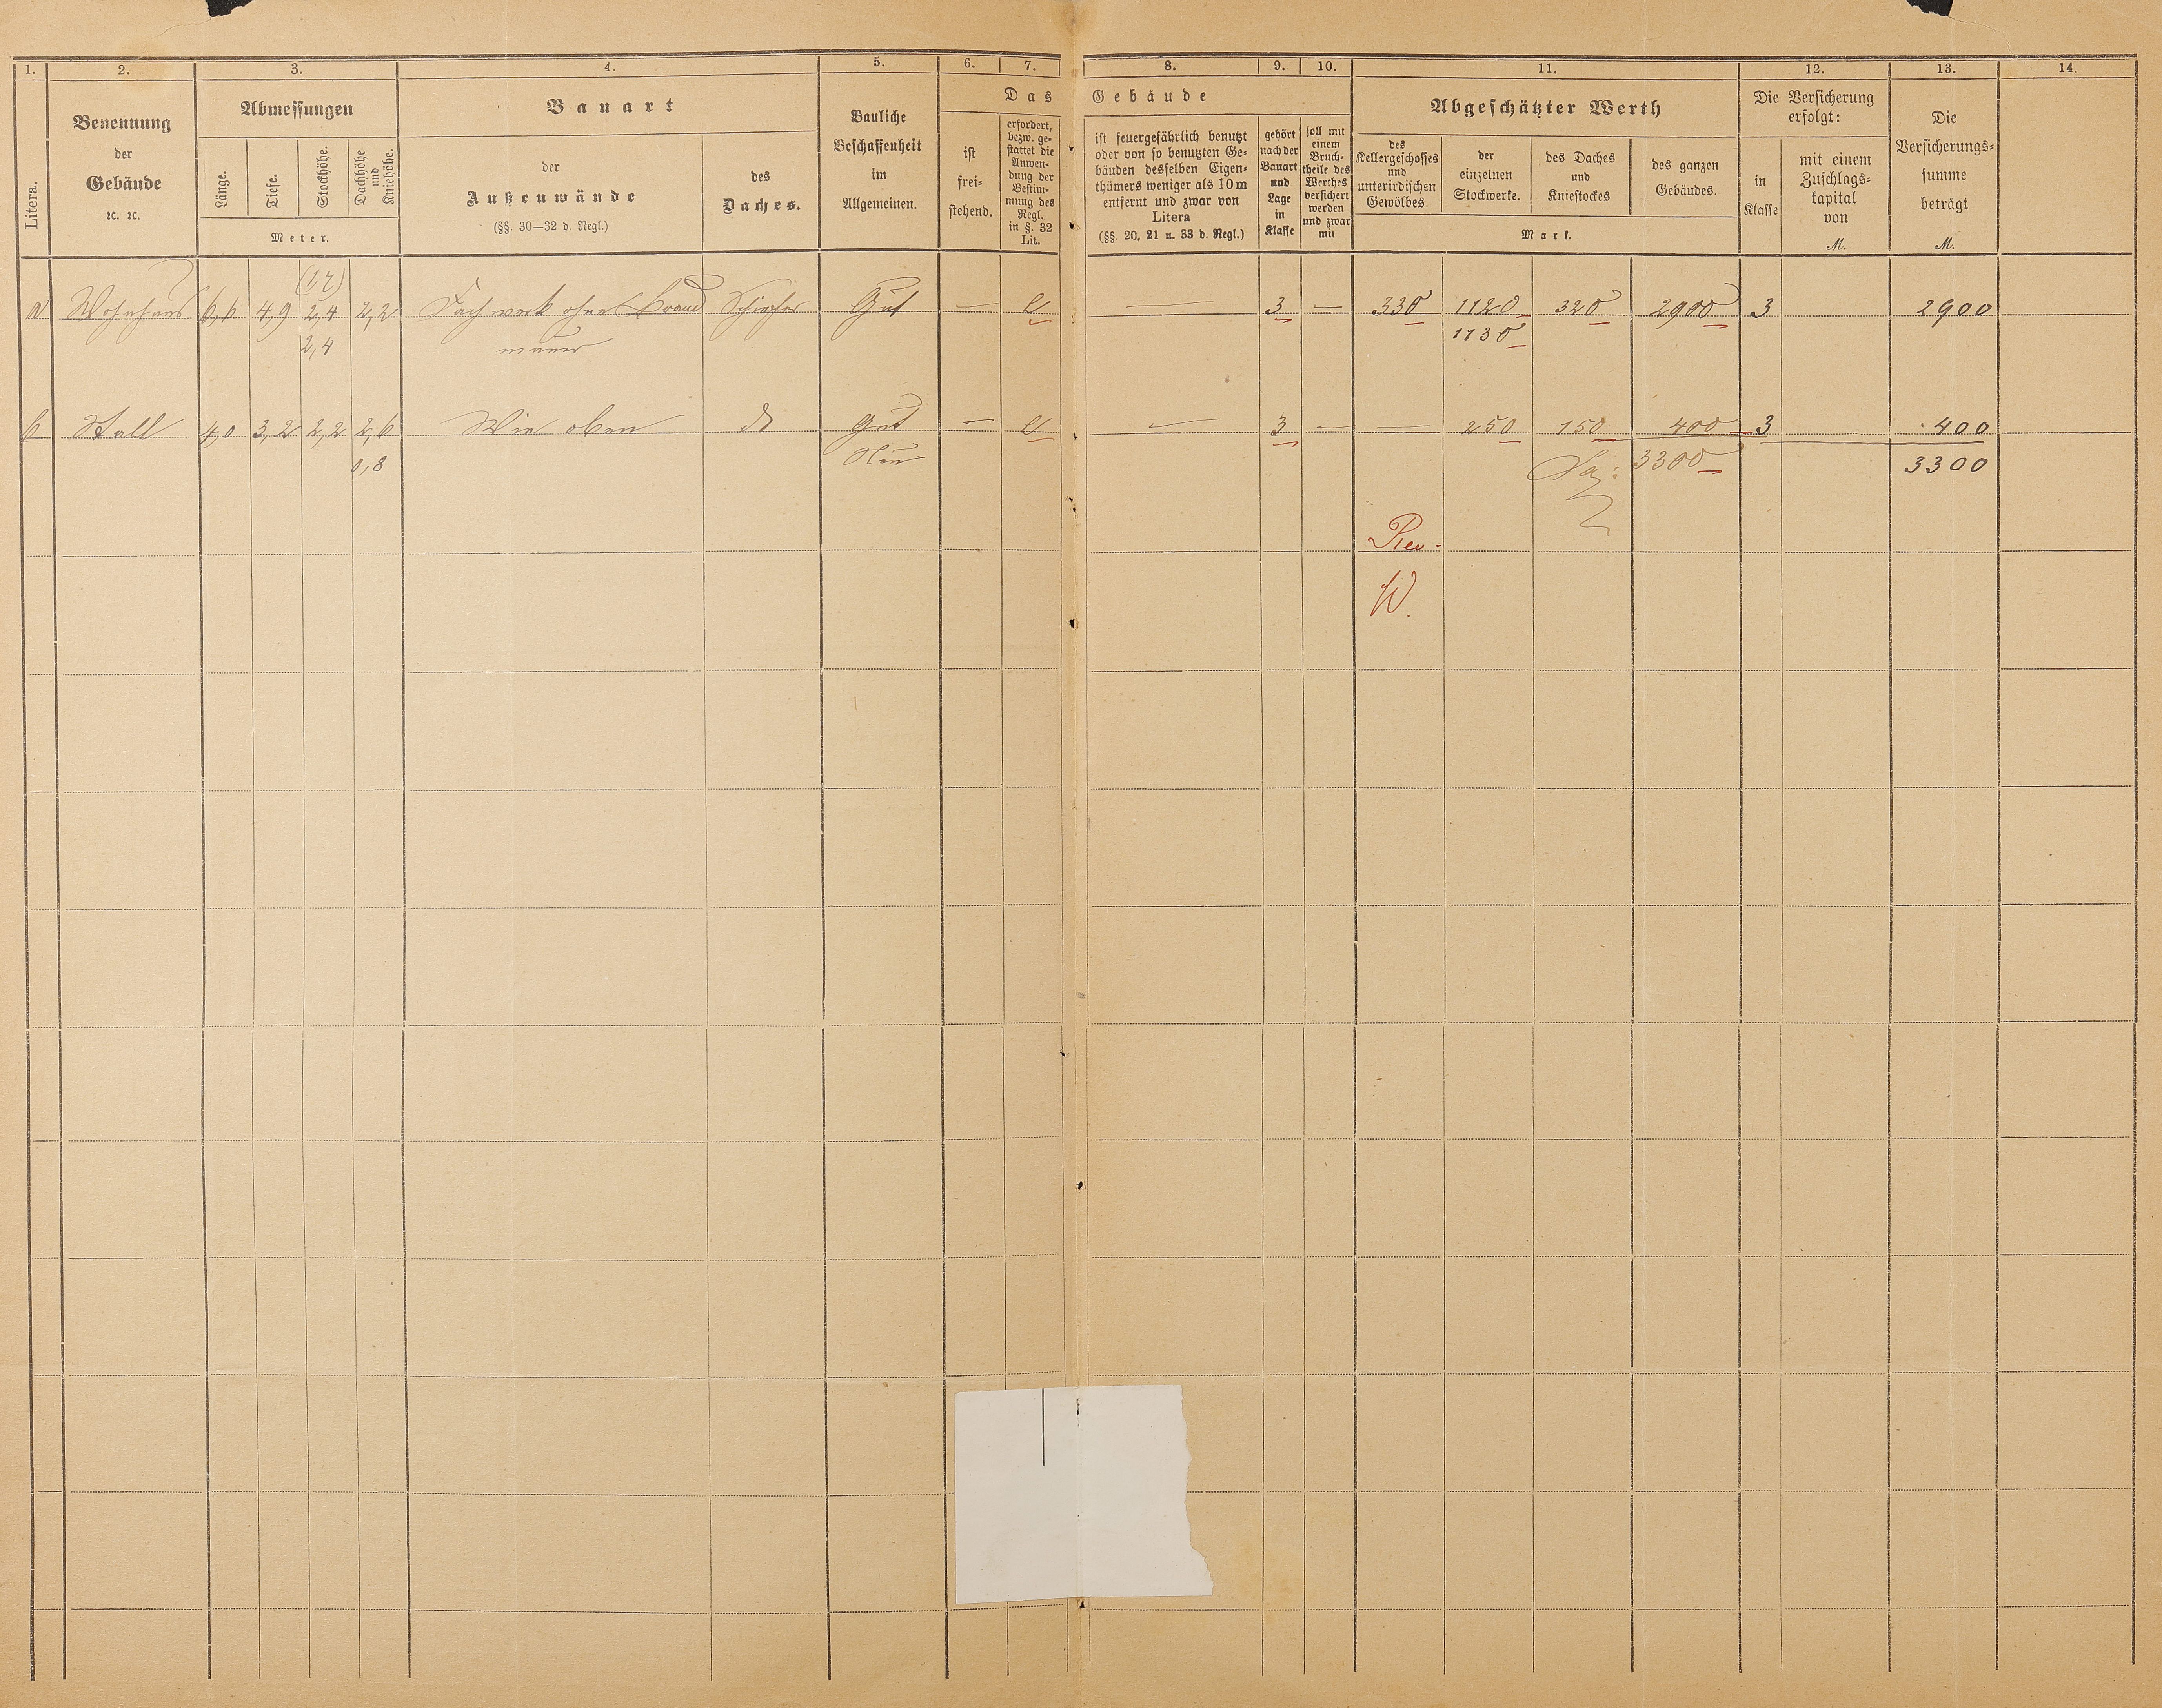 1. 2. 3. 4. 5. 6. 7. 8. 9. 10. 11. 12. 13. 14.
Litera.
Benennung
der
Gebäude
ꝛc. ꝛc.
Abmessungen
Länge.
Tiefe.
Stockhöhe.
Dachhöhe
und
Kniehöhe.
Meter.
Bauart
der
Außenwände
(§§. 30—32 d. Regl.)
des
Daches.
Bauliche
Beschaffenheit
im
Allgemeinen.
Das Gebäude
ist
frei-
stehend.
erfordert,
bezw. ge-
stattet die
Anwen-
dung der
Bestim-
mung des
Regl.
in §. 32
Lit.
ist feuergefährlich benutzt
oder von so benutzten Ge-
bäuden desselben Eigen-
thümers weniger als 10 m
entfernt und zwar von
Litera
(§§. 20, 21 u. 33 d. Regl.)
gehört
nach der
Bauart
und
Lage
in
Klasse
soll mit
einem
Bruch-
theile des
Werthes
versichert
werden
und zwar
mit
Abgeschätzter Werth
des
Kellergeschosses
und
unterirdischen
Gewölbes.
der
einzelnen
Stockwerke.
des Daches
und
Kniestockes
des ganzen
Gebäudes.
Mark.
Die Versicherung
erfolgt:
in
Klasse
mit einem
Zuschlags-
kapital
von
M.
Die
Versicherungs-
summe
beträgt
M.
a Wohnhaus 6,6 4,9 2,4 2,2 Fachwerk ohne Brand Schiefer Gut — e — 3 — 330 1120 320 2900 3 2900
2,4 mauer 1130
b Stall 4,0 3,2 2,2 2,6 Wie oben do Gut — e — 3 — — 250 150 400 3 400
0,8 Neu Sa: 3300 3300
Rev.
W.